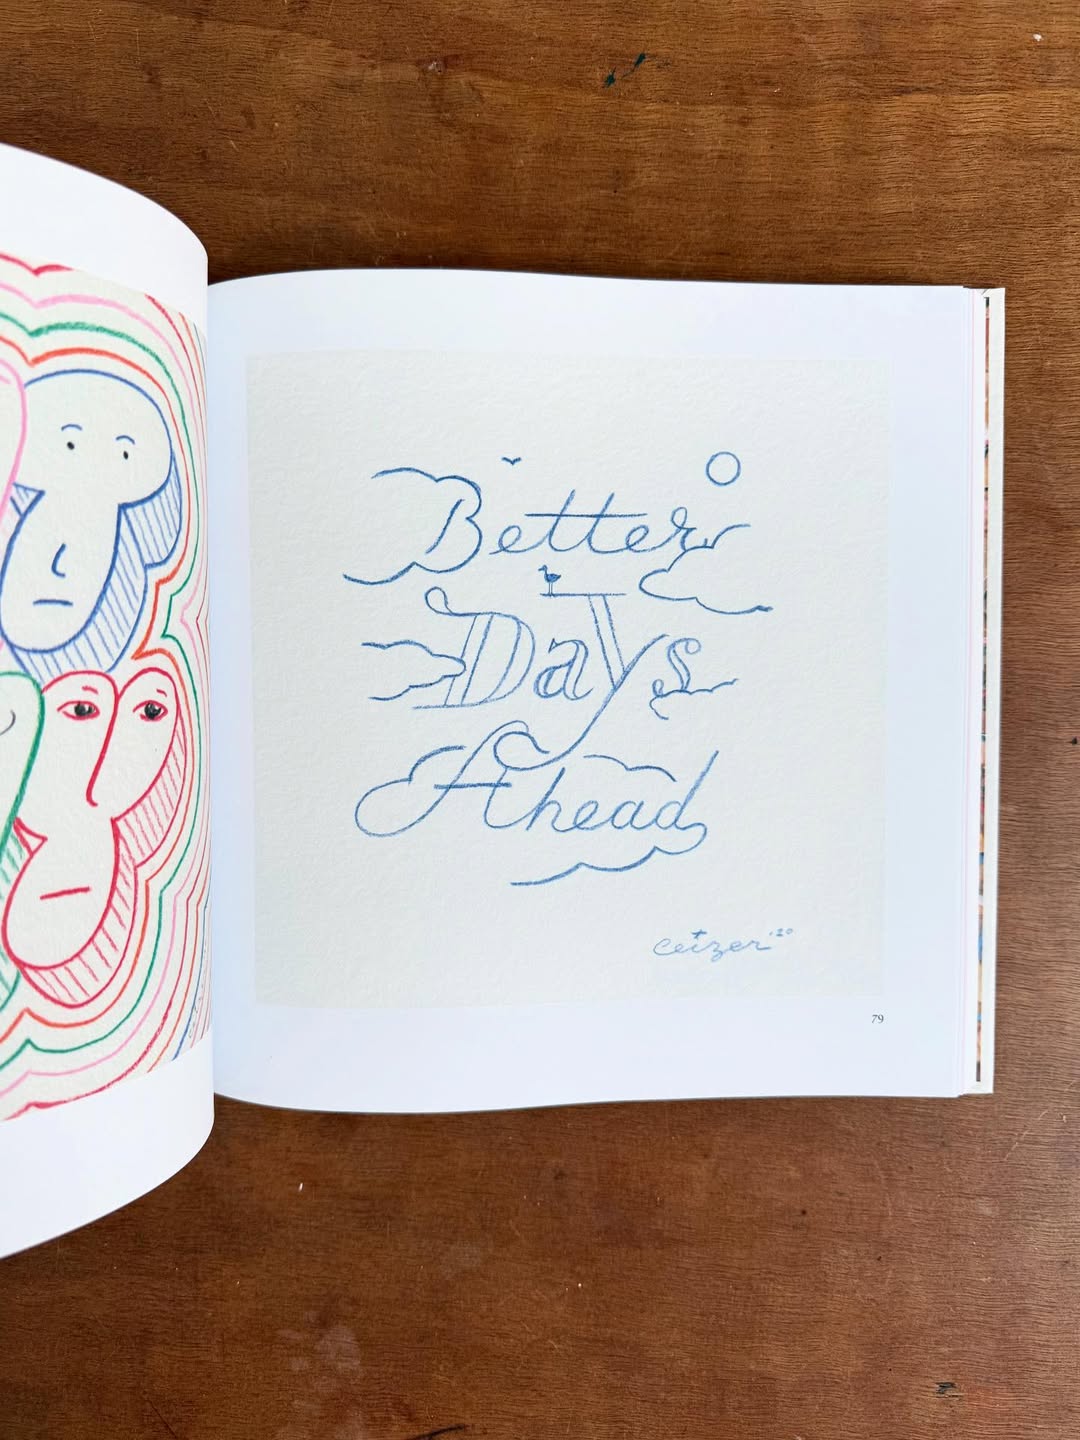 Better
Days
Ahead
Ceizer '20
79